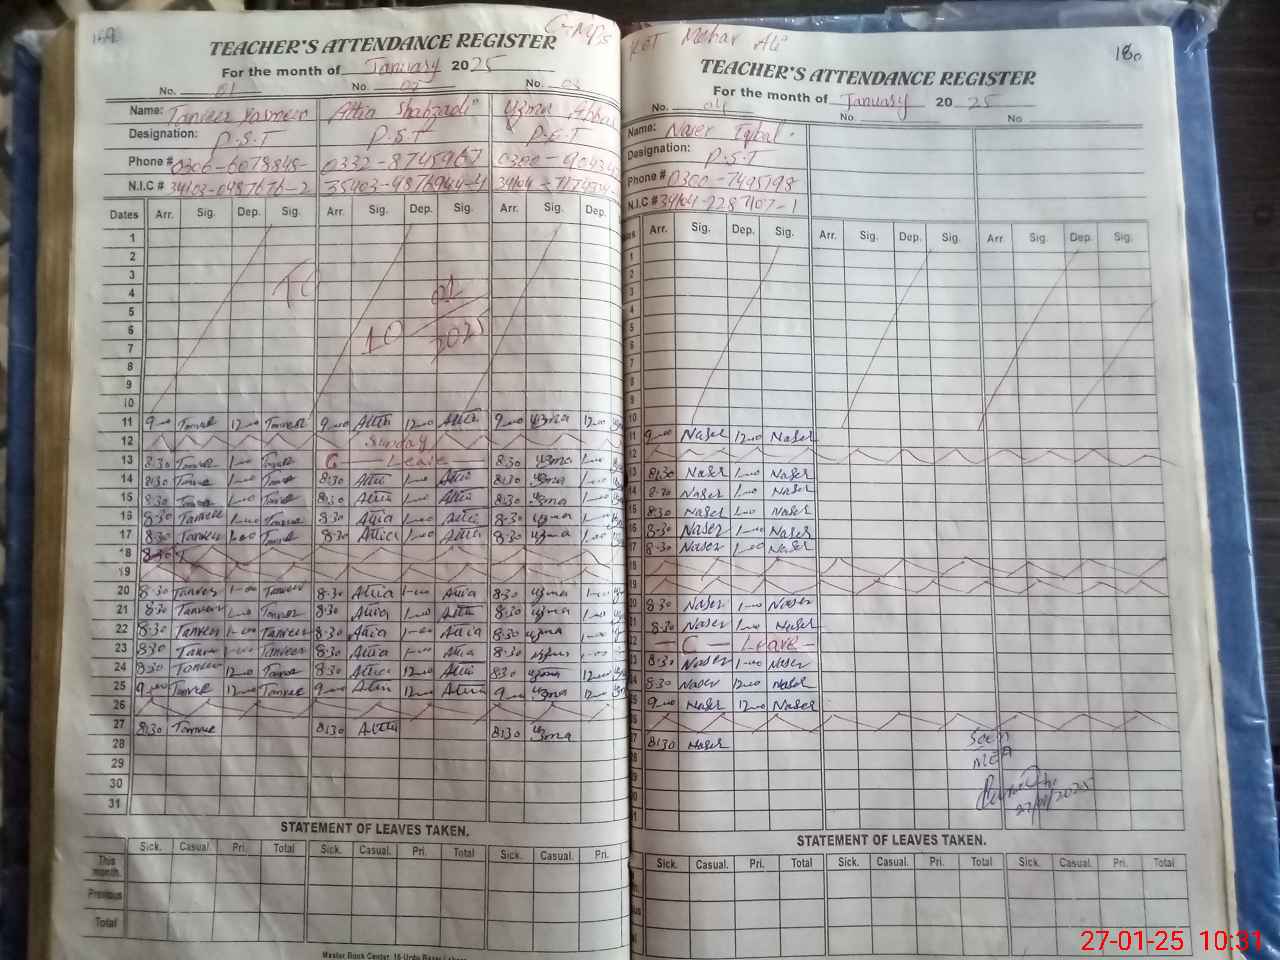 TEACHER'S ATTENDANCE REGISTER
For the month of January 2025
No. 01 No. 02 No. 03
Name: Tanveer Yasmeen Attia Shahzadi Uzma Abbas
Designation: P.S.T P.S.T P.E.T
Phone # 0306-6078848 0332-8745967 0300-
N.I.C # 34103-0487676-2 35403-4876944-4 34104-
Dates Arr. Sig. Dep. Sig. Arr. Sig. Dep. Sig. Arr. Sig. Dep.
1
2
3
4
5
6
7
8
9
10
10 01 2025
11 9-00 Tanveer 12-00 Tanveer 9-00 Attia 12-00 Attia 9-00 Uzma 12-00
12 Sunday
13 8:30 Tanveer 1-00 Tanveer C Leave 8:30 Uzma 1-00
14 8:30 Tanveer 1-00 Tanveer 8:30 Attia 1-00 Attia 8:30 Uzma 1-00
15 8:30 Tanveer 1-00 Tanveer 8:30 Attia 1-00 Attia 8:30 Uzma 1-00
16 8:30 Tanveer 1-00 Tanveer 8:30 Attia 1-00 Attia 8:30 Uzma 1-00
17 8:30 Tanveer 1-00 Tanveer 8:30 Attia 1-00 Attia 8:30 Uzma 1-00
18 8:30
19
20 8:30 Tanveer 1-00 Tanveer 8:30 Attia 1-00 Attia 8:30 Uzma 1-00
21 8:30 Tanveer 1-00 Tanveer 8:30 Attia 1-00 Attia 8:30 Uzma 1-00
22 8:30 Tanveer 1-00 Tanveer 8:30 Attia 1-00 Attia 8:30 Uzma 1-00
23 8:30 Tanveer 1-00 Tanveer 8:30 Attia 1-00 Attia 8:30 Uzma 1-00
24 8:30 Tanveer 12-00 Tanveer 8:30 Attia 12-00 Attia 8:30 Uzma 12-00
25 9-00 Tanveer 12-00 Tanveer 9-00 Attia 12-00 Attia 9-00 Uzma 12-00
26
27 8:30 Tanveer 8:30 Attia 8:30 Uzma
28
29
30
31
STATEMENT OF LEAVES TAKEN.
Sick. Casual. Pri. Total Sick. Casual. Pri. Total Sick. Casual. Pri.
This month.
Previous
Total
Kot Mehar Ali
180
TEACHER'S ATTENDANCE REGISTER
For the month of January 2025
No. 04 No. No
Name: Naser Iqbal
Designation: P.S.T
Phone # 0300-7495798
N.I.C # 34104-2287407-1
Arr. Sig. Dep. Sig. Arr. Sig. Dep. Sig. Arr. Sig. Dep. Sig.
1
2
3
4
5
6
7
8
9
10
11 9-00 Naser 12-00 Naser
12
13 8:30 Naser 1-00 Naser
14 8:30 Naser 1-00 Naser
15 8:30 Naser 1-00 Naser
16 8:30 Naser 1-00 Naser
17 8:30 Naser 1-00 Naser
18
19
20 8:30 Naser 1-00 Naser
21 8:30 Naser 1-00 Naser
22 C Leave
23 8:30 Naser 1-00 Naser
24 8:30 Naser 12-00 Naser
25 9-00 Naser 12-00 Naser
26
27 8:30 Naser
Seen
MEA
27/01/2025
STATEMENT OF LEAVES TAKEN.
Sick. Casual. Pri. Total Sick. Casual. Pri. Total Sick. Casual. Pri. Total
27-01-25 10:31